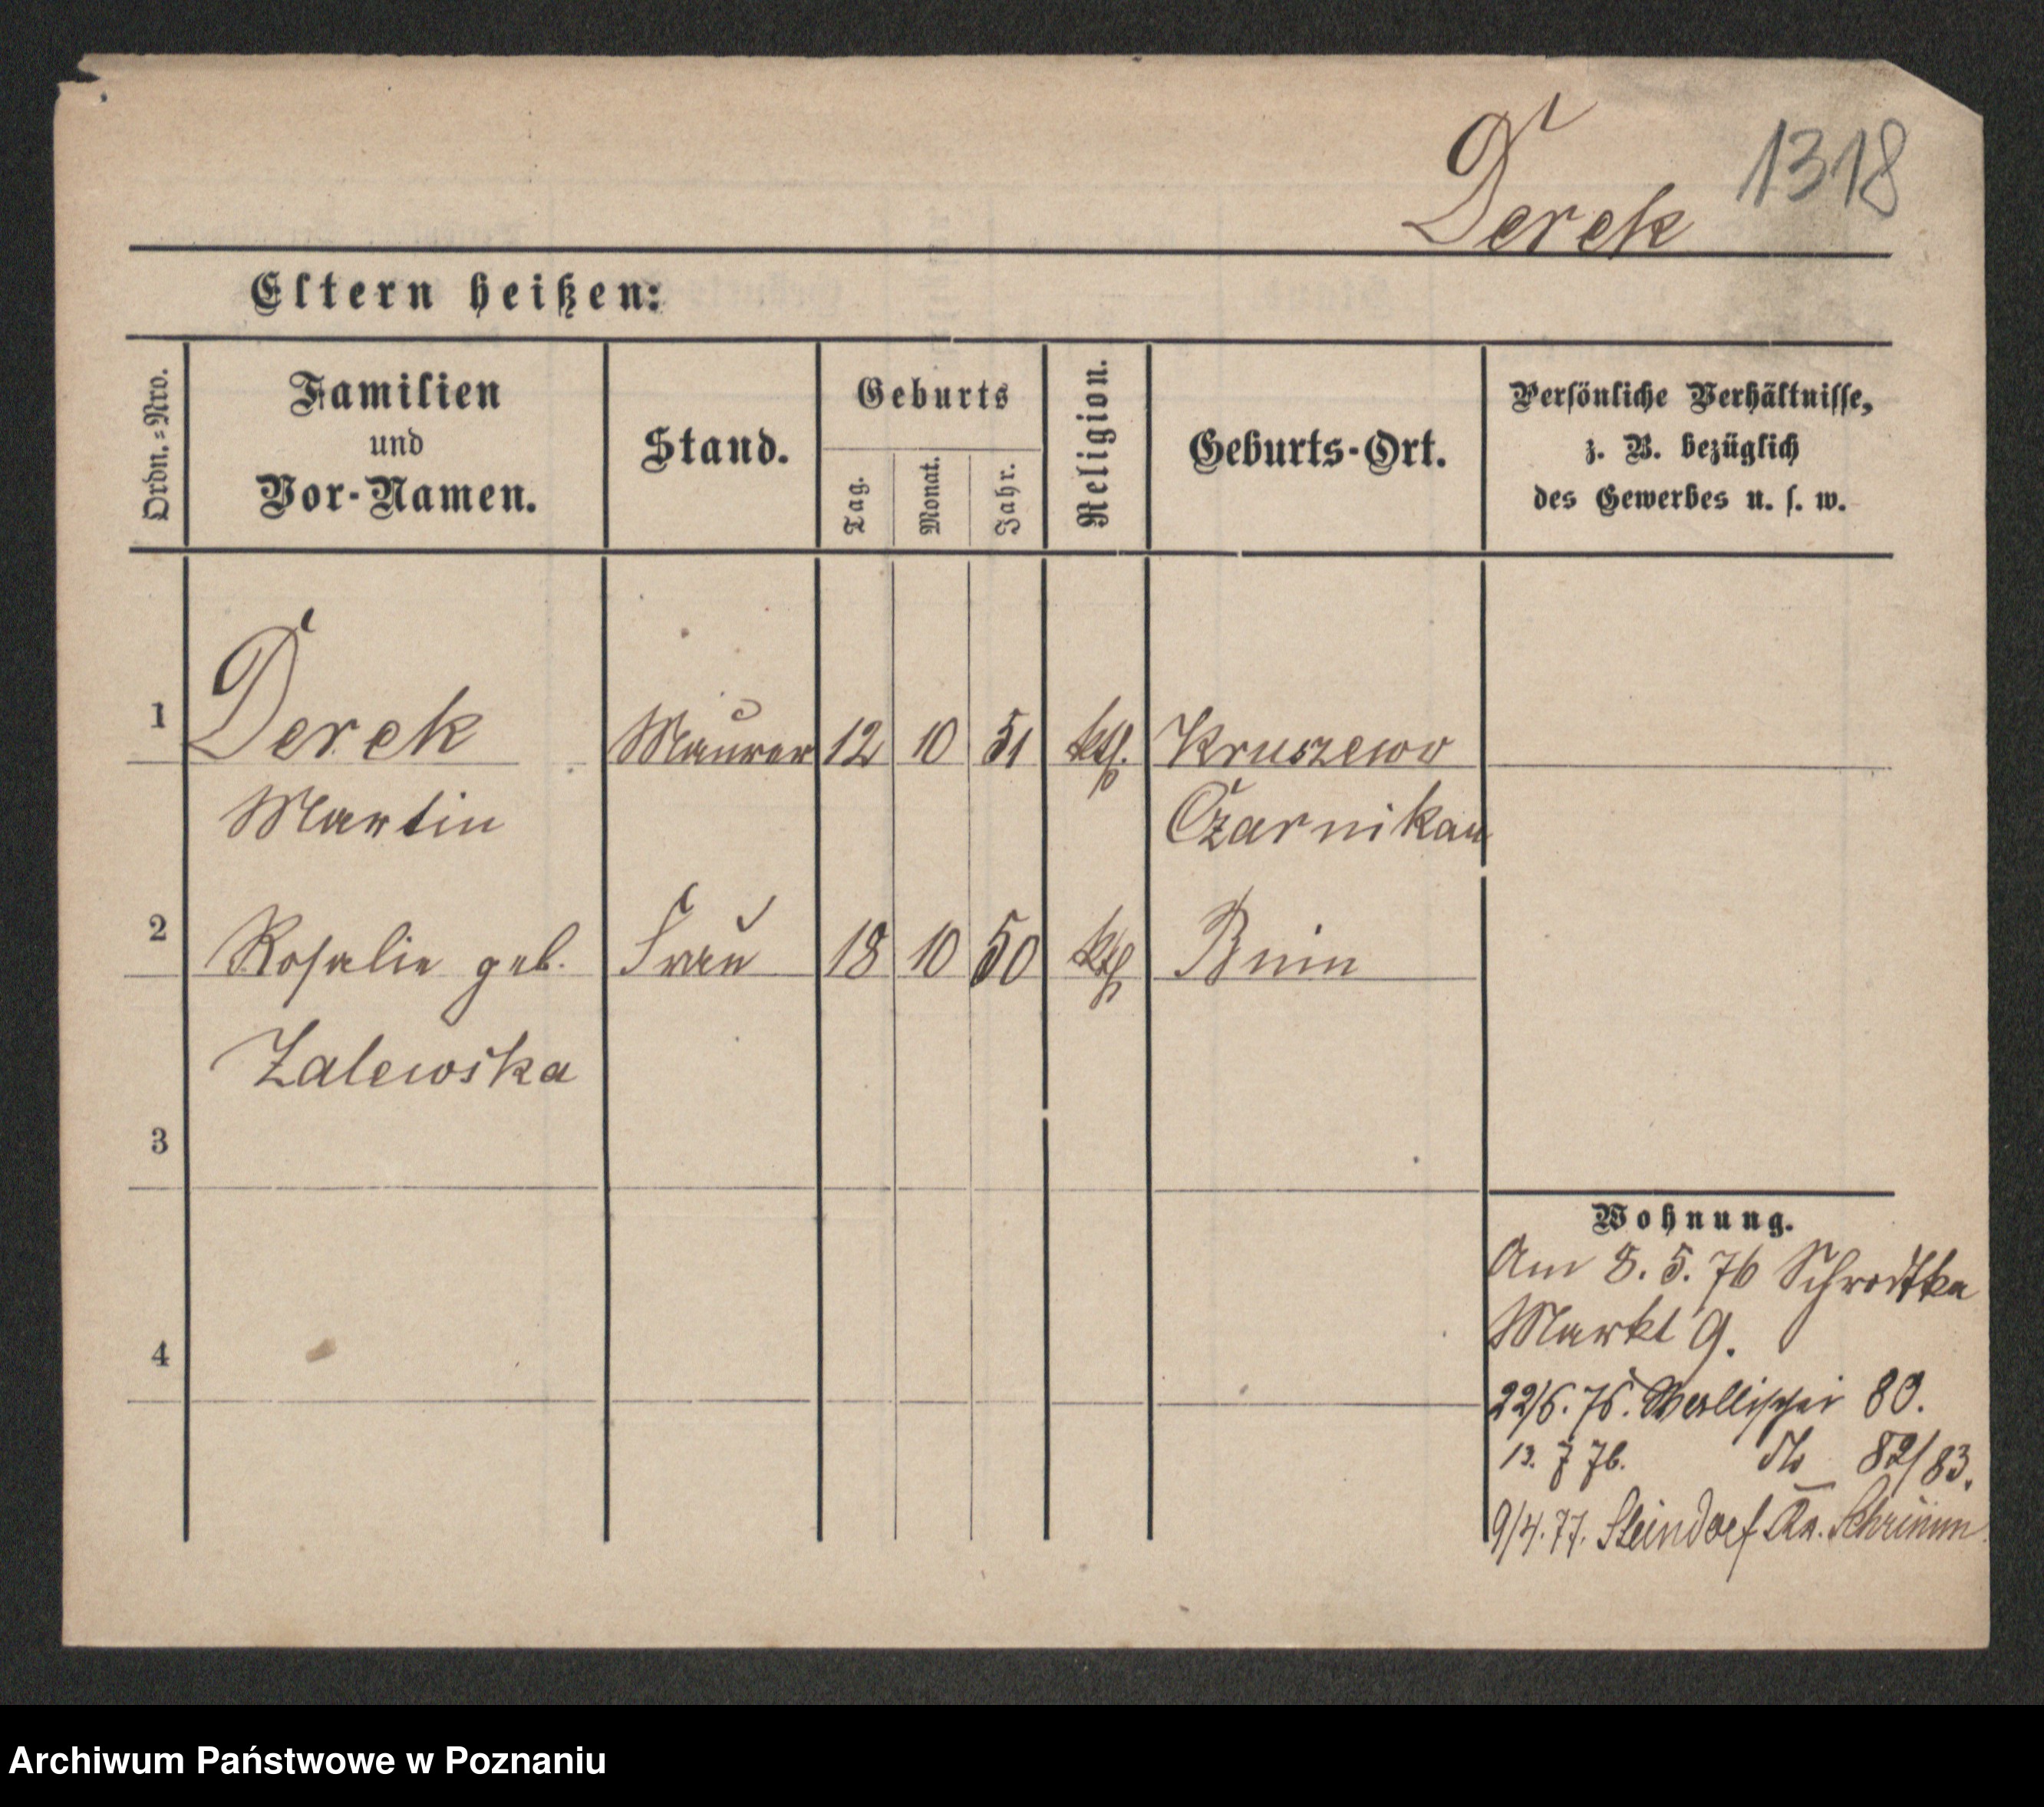 1318
Derek
Eltern heißen:
Ordn.=Nro.
Familien
und
Vor-Namen.
Stand.
Geburts
Tag.
Monat.
Jahr.
Religion.
Geburts-Ort.
Persönliche Verhältnisse,
z. B. bezüglich
des Gewerbes u. s. w.
1 Derek Maurer 12 10 51 kth. Kruszewo
Martin Czarnikau
2 Rosalie geb. Frau 18 10 50 kth Bnin
Zalewska
3
4
Wohnung.
Am 8. 5. 76 Schrodka
Markt 9.
22/6. 76. Wallischei 80.
13. 7 76. do 82/83.
9/4. 77. Steindorf Kr. Schrimm
Archiwum Państwowe w Poznaniu